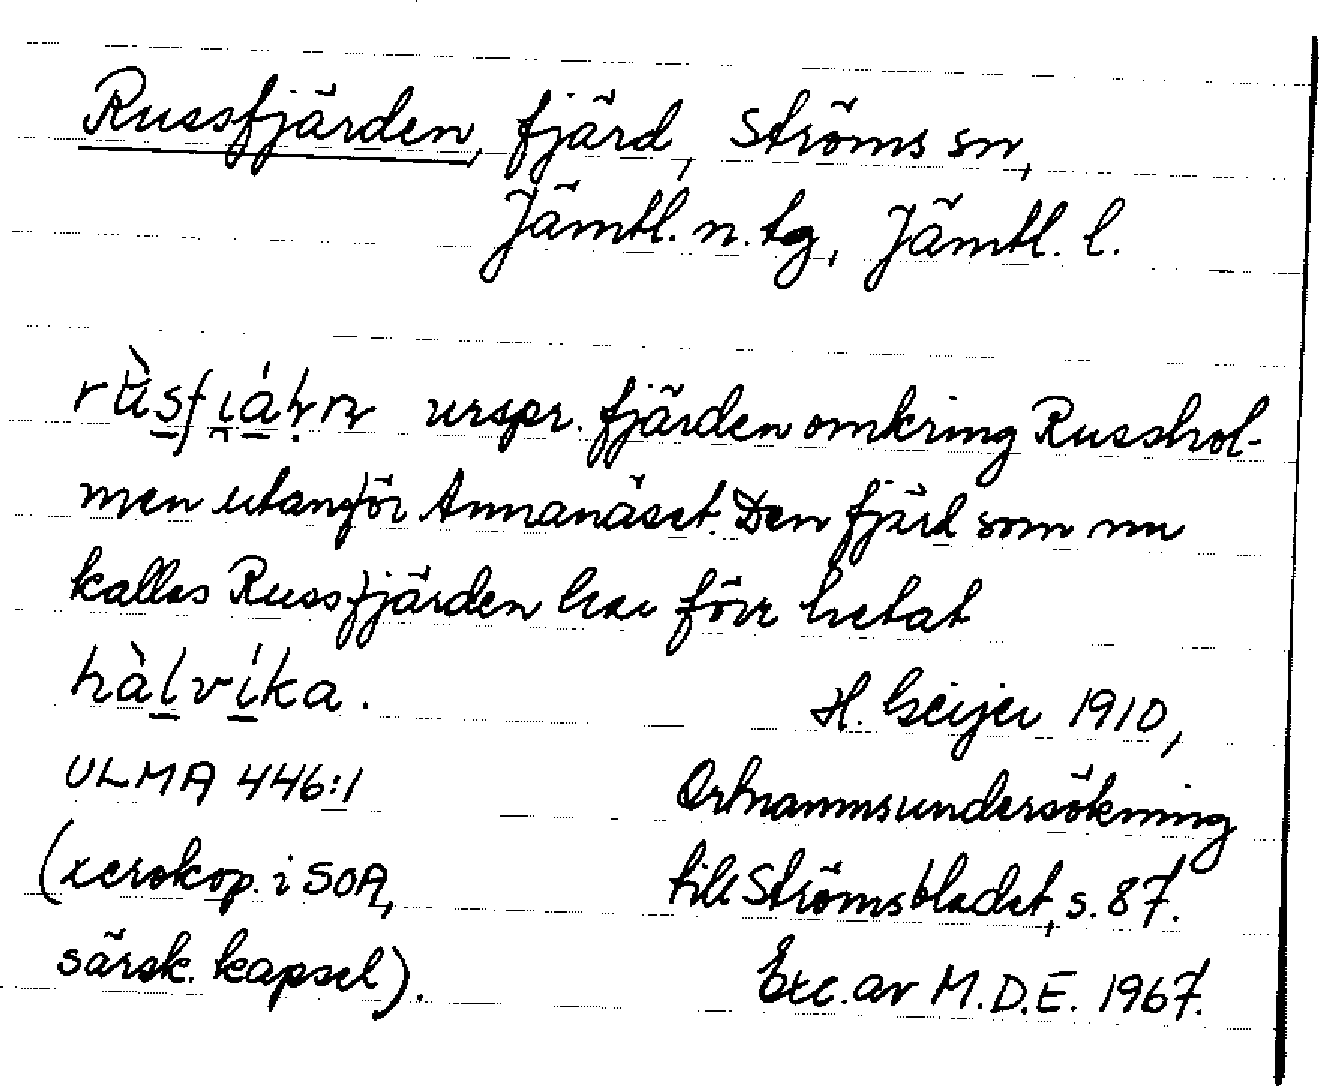 Russfjärden, fjärd, Ströms sn,
Jämtl. n. tg, Jämtl. l.
urspr. fjärden omkring Russhol-
men utanför Annanäset. Den fjärd som nu
kallas Russfjärden har förr hetat
hàlvíka.
H. Geijer 1910,
ULMA 446:1
Ortnamnsundersökning
(xerokop. i SOA,
till Strömsbladet, s. 87.
särsk. kapsel).
Exc. av M.D.E. 1967.